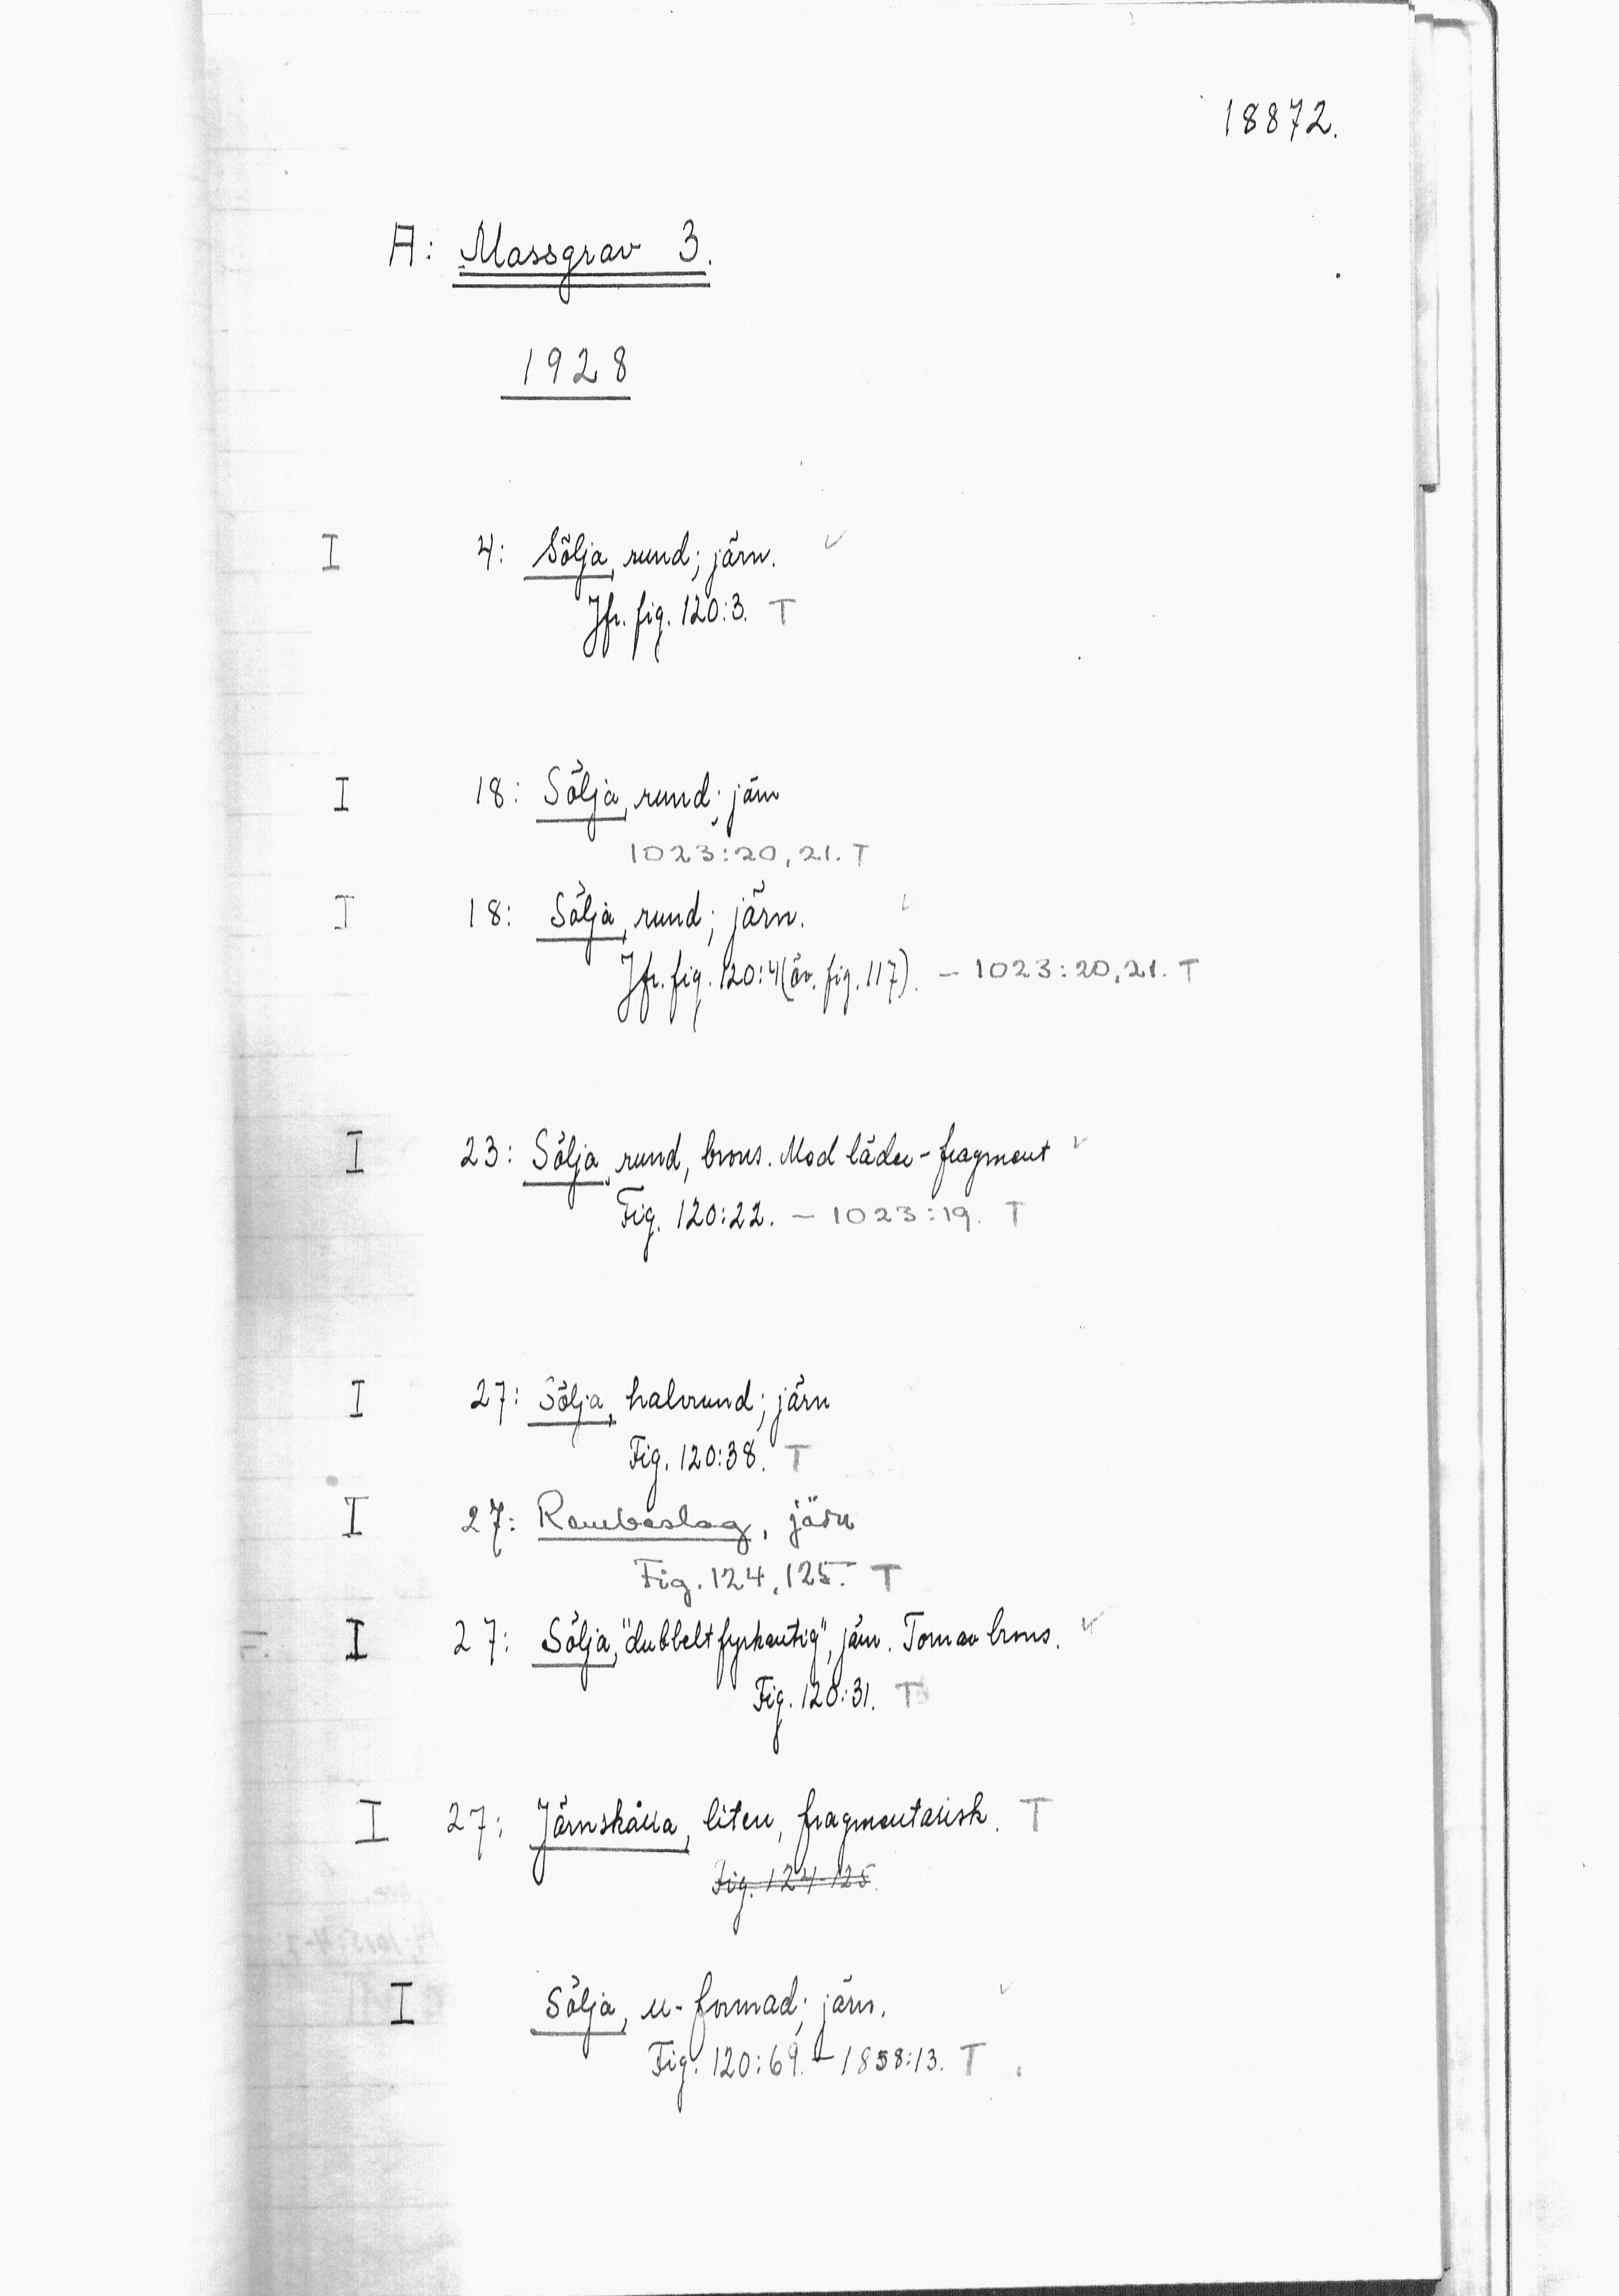 18872.
A: Massgrav 3.
1928
I 4: Sölja, rund; järn. ✓
Jfr. fig. 120:3. T
I 18: Sölja, rund; järn
1023:20,21. T
I 18: Sölja, rund; järn. ✓
Jfr. fig. 120:4 (äv. fig. 117). – 1023:20,21. T
I 23: Sölja, rund, brons. Med läder-fragment ✓
Fig. 120:22. – 1023:19. T
I 27: Sölja, halvrund; järn
Fig. 120:38. T
I 27: Rembeslag, järn
Fig. 124, 125. T
F. I 27: Sölja, "dubbelt fyrkantig", järn. Torn av brons. ✓
Fig. 120:31. T
I 27: Järnskålla, liten, fragmentarisk. T
Fig. 124-125.
I Sölja, u-formad; järn. ✓
Fig. 120:69. – 1858:13. T